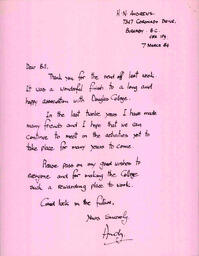 H. N. ANDREWS
7347 CORONADO DRIVE,
BURNABY B.C.
7 MARCH 84
Dear Bill,
Thank you for the send off last week.
It was a wonderful finish to a long and
happy association with Douglas College.
In the last twelve years I have made
many friends and I hope that we can
continue to meet on the activities yet to
take place for many years to come.
Please pass on my good wishes to
everyone and for making the College
such a rewarding place to work.
Good luck in the future.
Yours sincerely,
Andy.